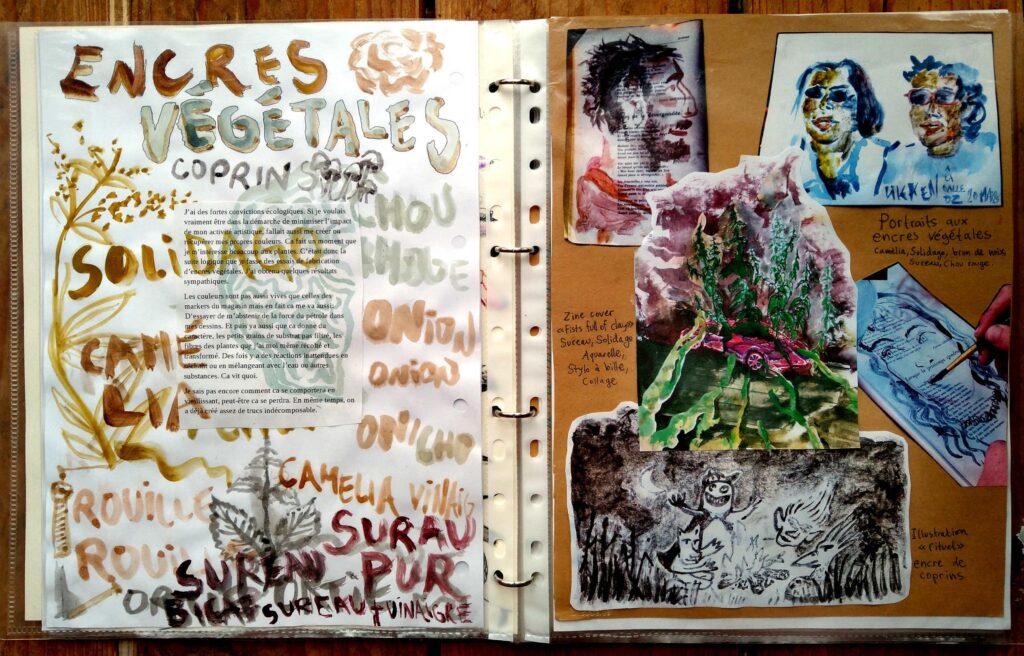 ENCRES
VÉGÉTALES
COPRINS
CHOU
ROUGE
SOLI
J'ai des fortes convictions écologiques. Si je voulais
vraiment être dans la démarche de minimiser l'impact
de mon activité artistique, fallait aussi me créer ou
récupérer mes propres couleurs. Ca fait un moment que
je m'intéresse beaucoup aux plantes. C'était donc la
suite logique que je fasse des essais de fabrication
d'encres végétales. J'ai obtenu quelques résultats
sympathiques.
Les couleurs sont pas aussi vives que celles des
markers du magasin mais en fait ca me va aussi.
D'essayer de m'abstenir de la force du pétrole dans
mes dessins. Et puis ya aussi que ca donne du
caractère, les petits grains de substrat pas filtré, les
fibres des plantes que j'ai moi même récolté et
transformé. Des fois y a des réactions inattendues en
séchant ou en mélangeant avec l'eau ou autres
substances. Ca vit quoi.
Je sais pas encore comment ca se comportera en
vieillissant, peut-être ca se perdra. En même temps, on
a déjà créé assez de trucs indécomposable.
ONION
ONION
CAME
LIA
ONICHO
CAMELIA VINAIG
ROUILLE
ROUIL
SURAU
PUR
SUREAU
BICAR SUREAU + VINAIGRE
UKKEN
Portraits aux
encres végétales
Camélia, Solidago, brou de noix,
Sureau, Chou rouge.
Zine cover
«Fists full of clay»
Sureau, Solidago
Aquarelle,
Stylo à bille,
Collage
Illustration
«rituel»
encre de
coprins